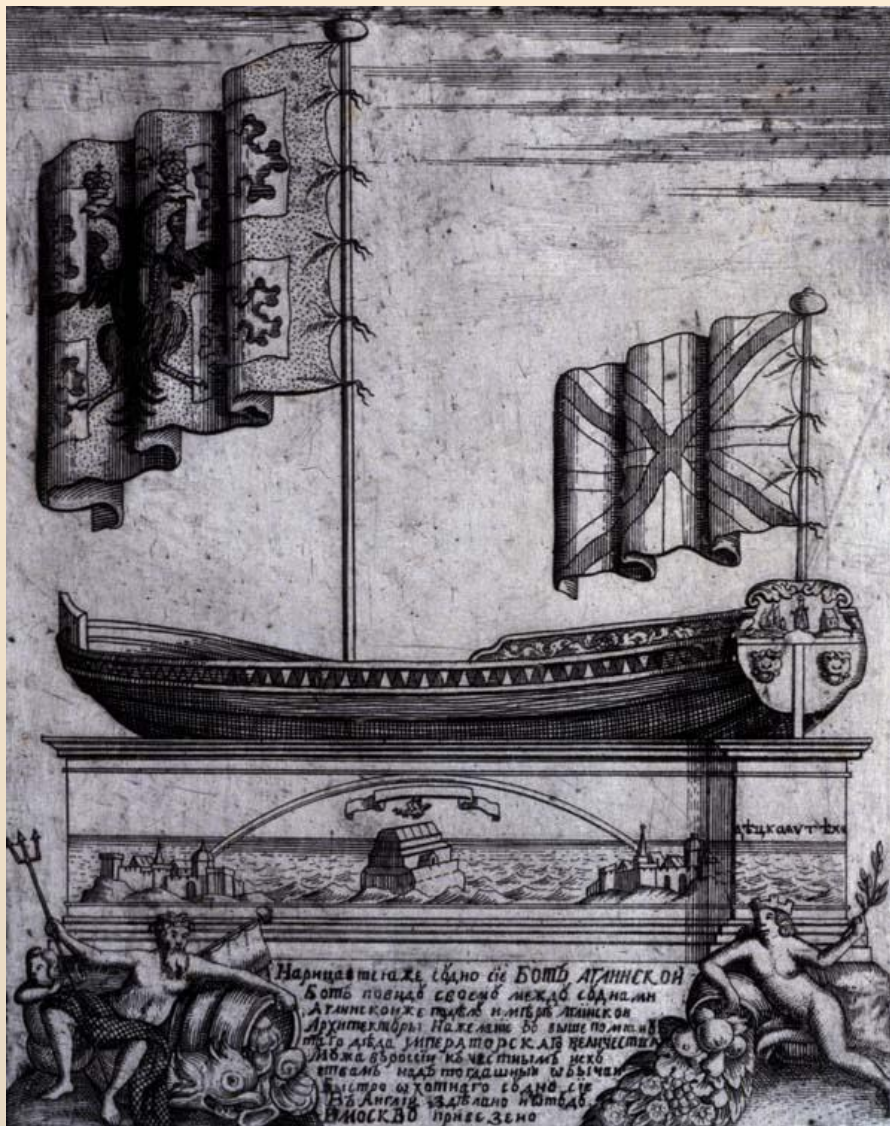 дѣцкаѧ ѹтѣха
Нарицаетсѧ же сꙋдно сїе БОТЪ АГЛИНСКОЙ
Ботъ по видꙋ своемꙋ междꙋ сꙋднами
Аглинскои же по дѣлꙋ и мѣрѣ Аглинскои
Архитектꙋры. На желание бо выше помѧнꙋ
таго дѣда ИМПЕРАТОРСКАГѠ ВЕЛИЧЕСТВА
Мꙋжа в россіи къ честнымъ искꙋ
ствамъ надъ тогдашный ѡбычай
быстро ѡхотнаго сꙋдно сїе
Въ Англїи здѣлано и ѿтꙋдꙋ
В МОСКВꙊ привезено